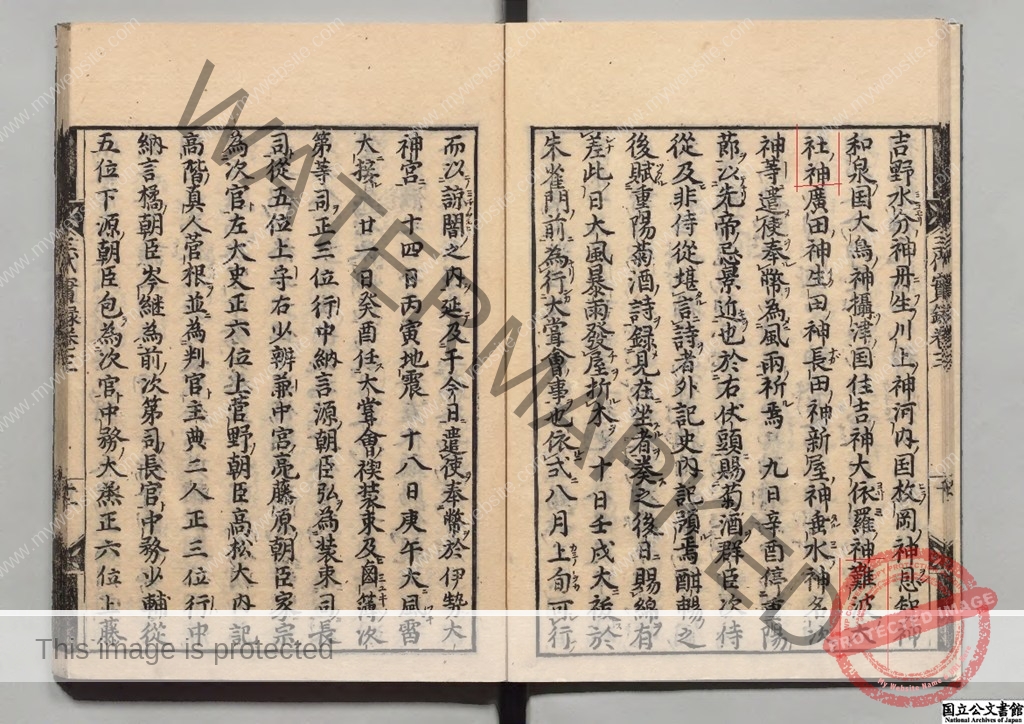 吉野水分神丹生川上神河内国枚岡神恩智神
和泉国大鳥神攝津国住吉神大依羅神難波
社神廣田神生田神長田神新屋神垂水神名次
神等遣使奉幣為風雨祈焉 九日辛酉停重陽
節以先帝忌景近也於右仗頭賜菊酒群臣次侍
從及非侍從堪言詩者外記史内記預焉酣暢之
後賦重陽菊酒詩録見在坐者奏之後日賜綿有
差此日大風暴雨發屋折木 十日壬戌大祓於
朱雀門前為行大嘗會事也依式八月上旬可行
而以諒闇之内延及于今日遣使奉幣於伊勢大
神宮 十四日丙寅地震 十八日庚午大風雷
大 廿一日癸酉任大嘗會禊裝束及 次
第等司正三位行中納言源朝臣弘為裝束司長
司從五位上守右少辨兼中宮亮藤原朝臣家宗
為次官左大史正六位上菅野朝臣高松大内記
高階真人菅根並為判官主典二人正三位行中
納言橘朝臣岑継為前次第司長官中務少輔從
五位下源朝臣包為次官中務大丞正六位上藤
三代實録卷三
三代實録卷三
国立公文書館
National Archives of Japan
WATERMARKED
This image is protected
PROTECTED IMAGE
My Website Name
www.mywebsite.com